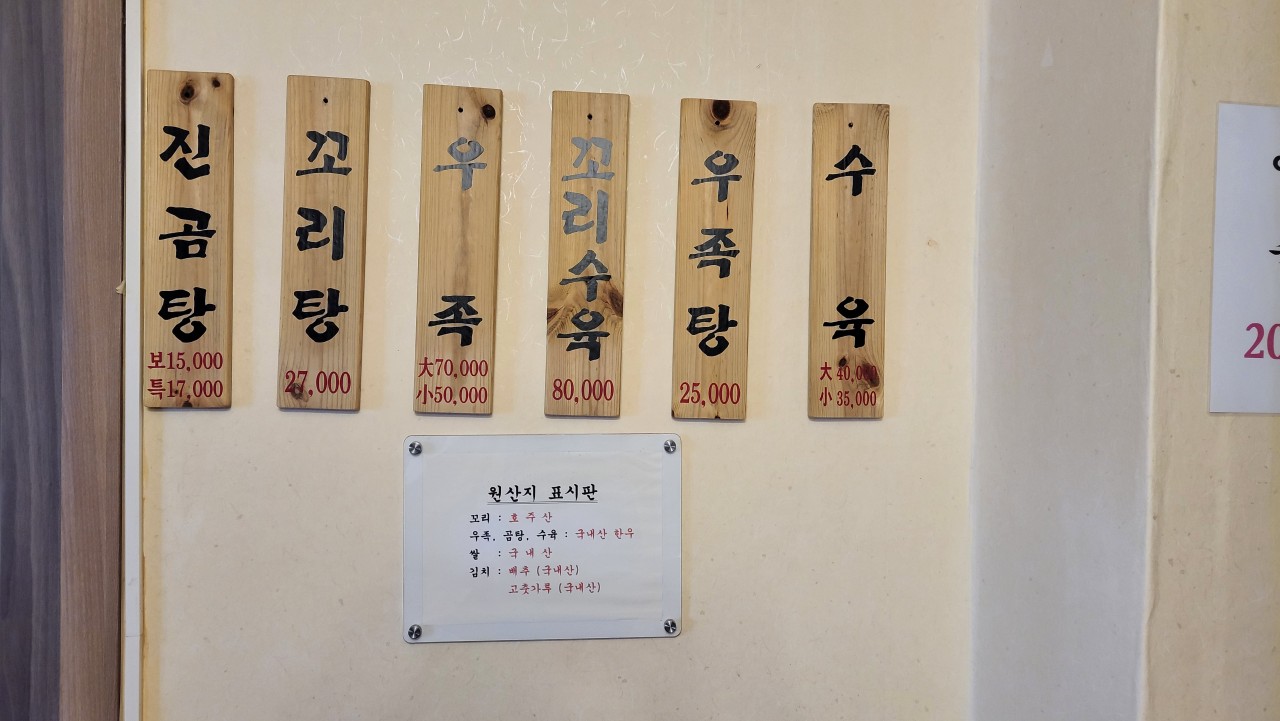 진곰탕
보15,000
특17,000
꼬리탕
27,000
우족
大70,000
小50,000
꼬리수육
80,000
우족탕
25,000
수육
大 40,000
小 35,000
원산지 표시판
꼬리 : 호주산
우족, 곰탕, 수육 : 국내산 한우
쌀 : 국내산
김치 : 배추 (국내산)
고춧가루 (국내산)